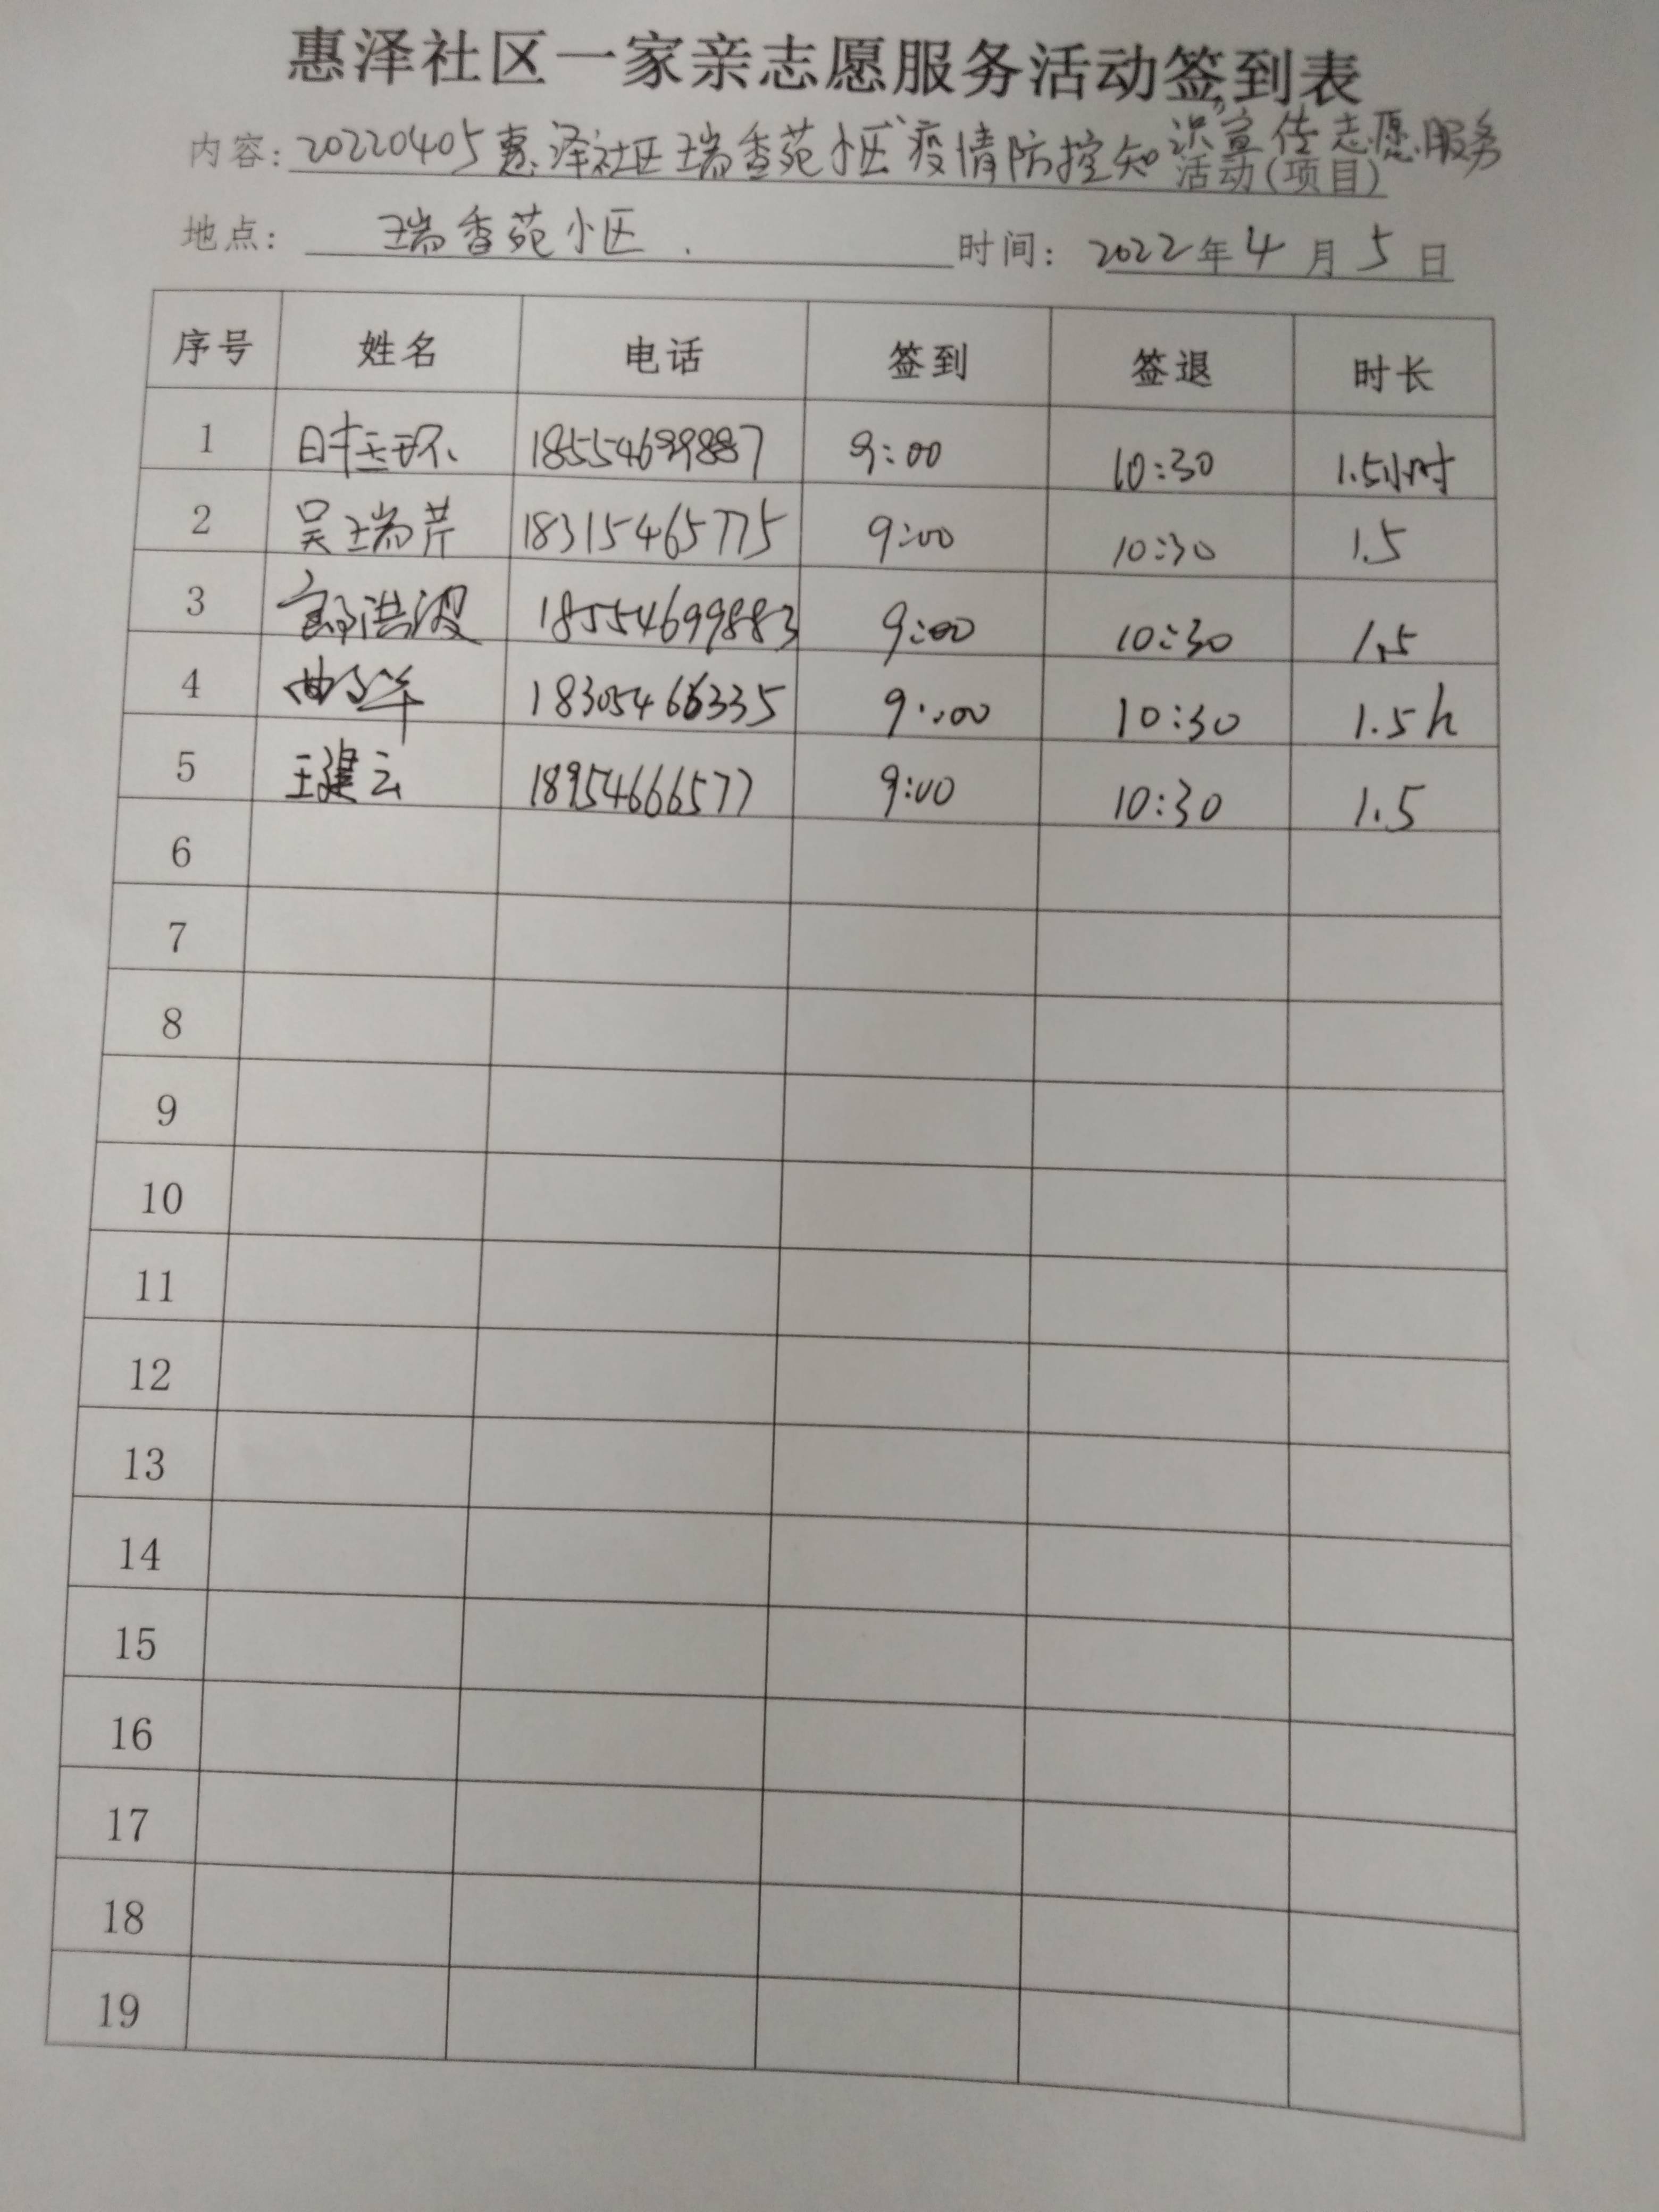 惠泽社区一家亲志愿服务活动签到表
内容：20220405惠泽社区瑞香苑小区"疫情防控知识宣传"志愿服务
活动(项目)
地点： 瑞香苑小区 . 时间： 2022年4月5日
序号 姓名 电话 签到 签退 时长
1 18554699887 9:00 10:30 1.5小时
2 吴瑞芹 18315465775 9:00 10:30 1.5
3 郭洪波 18554699883 9:00 10:30 1.5
4 18305466335 9:00 10:30 1.5h
5 王建云 18954666577 9:00 10:30 1.5
6
7
8
9
10
11
12
13
14
15
16
17
18
19